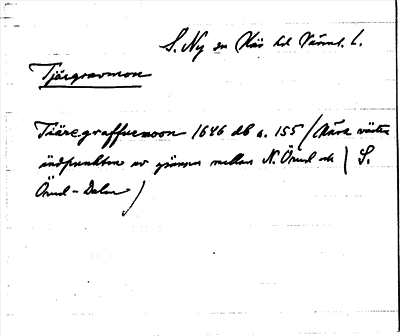 S. Ny sn Näs hd Värml. l.
Tjärgravmon
Tiäregraffuemoon 1646 db s. 155 / Nära västra
ändpunkten av gränsen mellan N. Örud och / S.
Örud - Dalen /